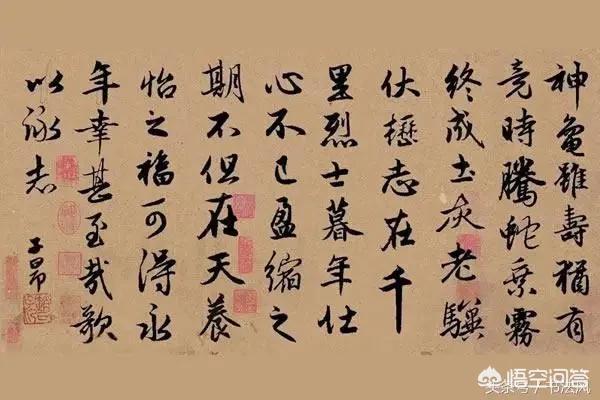 神龜雖壽猶有
竟時騰蛇乗霧
終成土灰老驥
伏櫪志在千
里烈士暮年仕
心不已盈縮之
期不但在天養
怡之福可得永
年幸甚至哉歌
以詠志
子昂
悟空问答
头条号 / 书法风